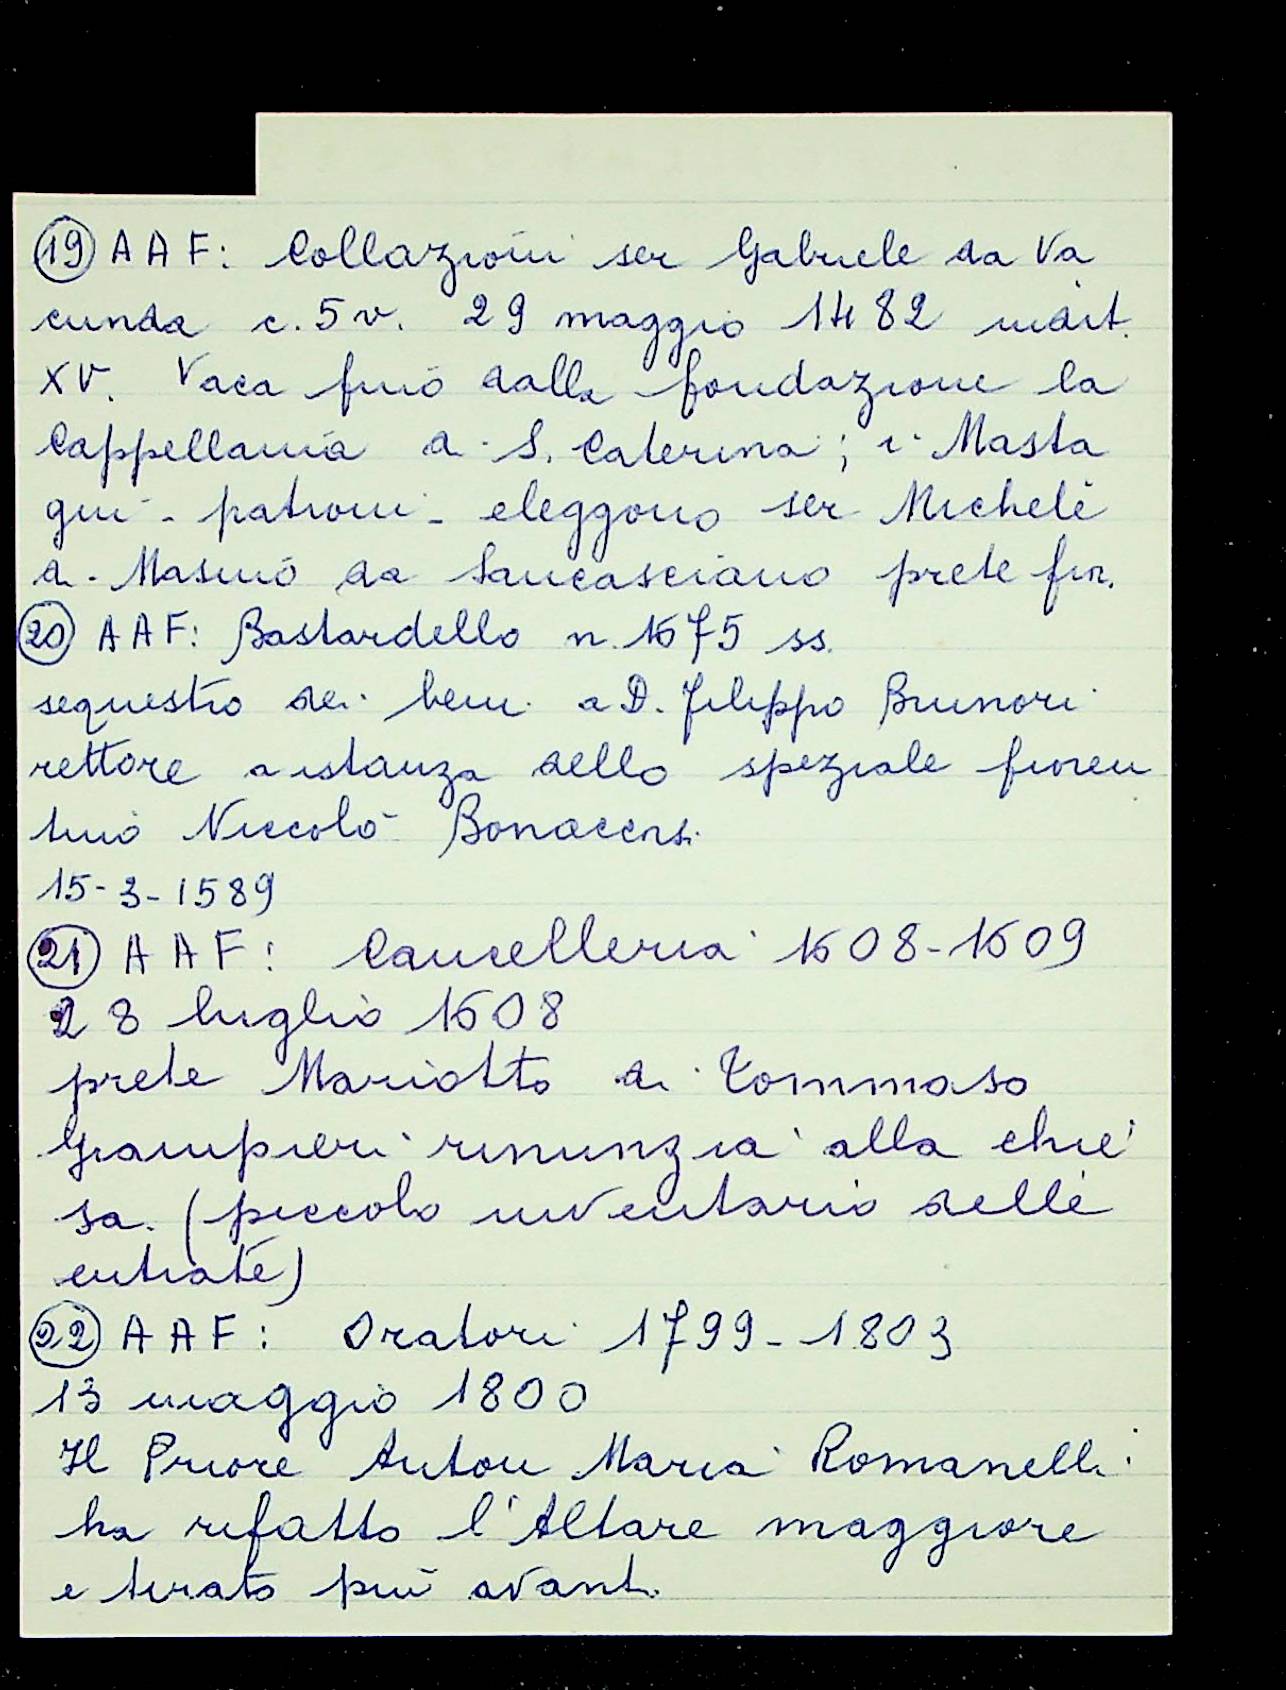 19 AAF: Collazioni ser Gabriele da Va
cunda c. 5 v. 29 maggio 1482 indit.
XV. Vaca fino dalla fondazione la
Cappellania di S. Caterina; i Masta
gni - patroni - eleggono ser Michele
di Masino da Sancasciano prete fior.
20 AAF: Bastardello n. 1675 ss.
sequestro dei beni a D. Filippo Brunori
rettore a istanza dello speziale fioren
tino Niccolò Bonaccorsi
15-3-1589
21 AAF: Cancelleria 1608-1609
28 luglio 1608
prete Mariotto di Tommaso
Giampieri rinunzia alla chie
sa. (piccolo inventario delle
entrate)
22 AAF: Oratori 1799-1803
13 maggio 1800
Il Priore Anton Maria Romanelli
ha rifatto l'Altare maggiore
e tirato più avanti.